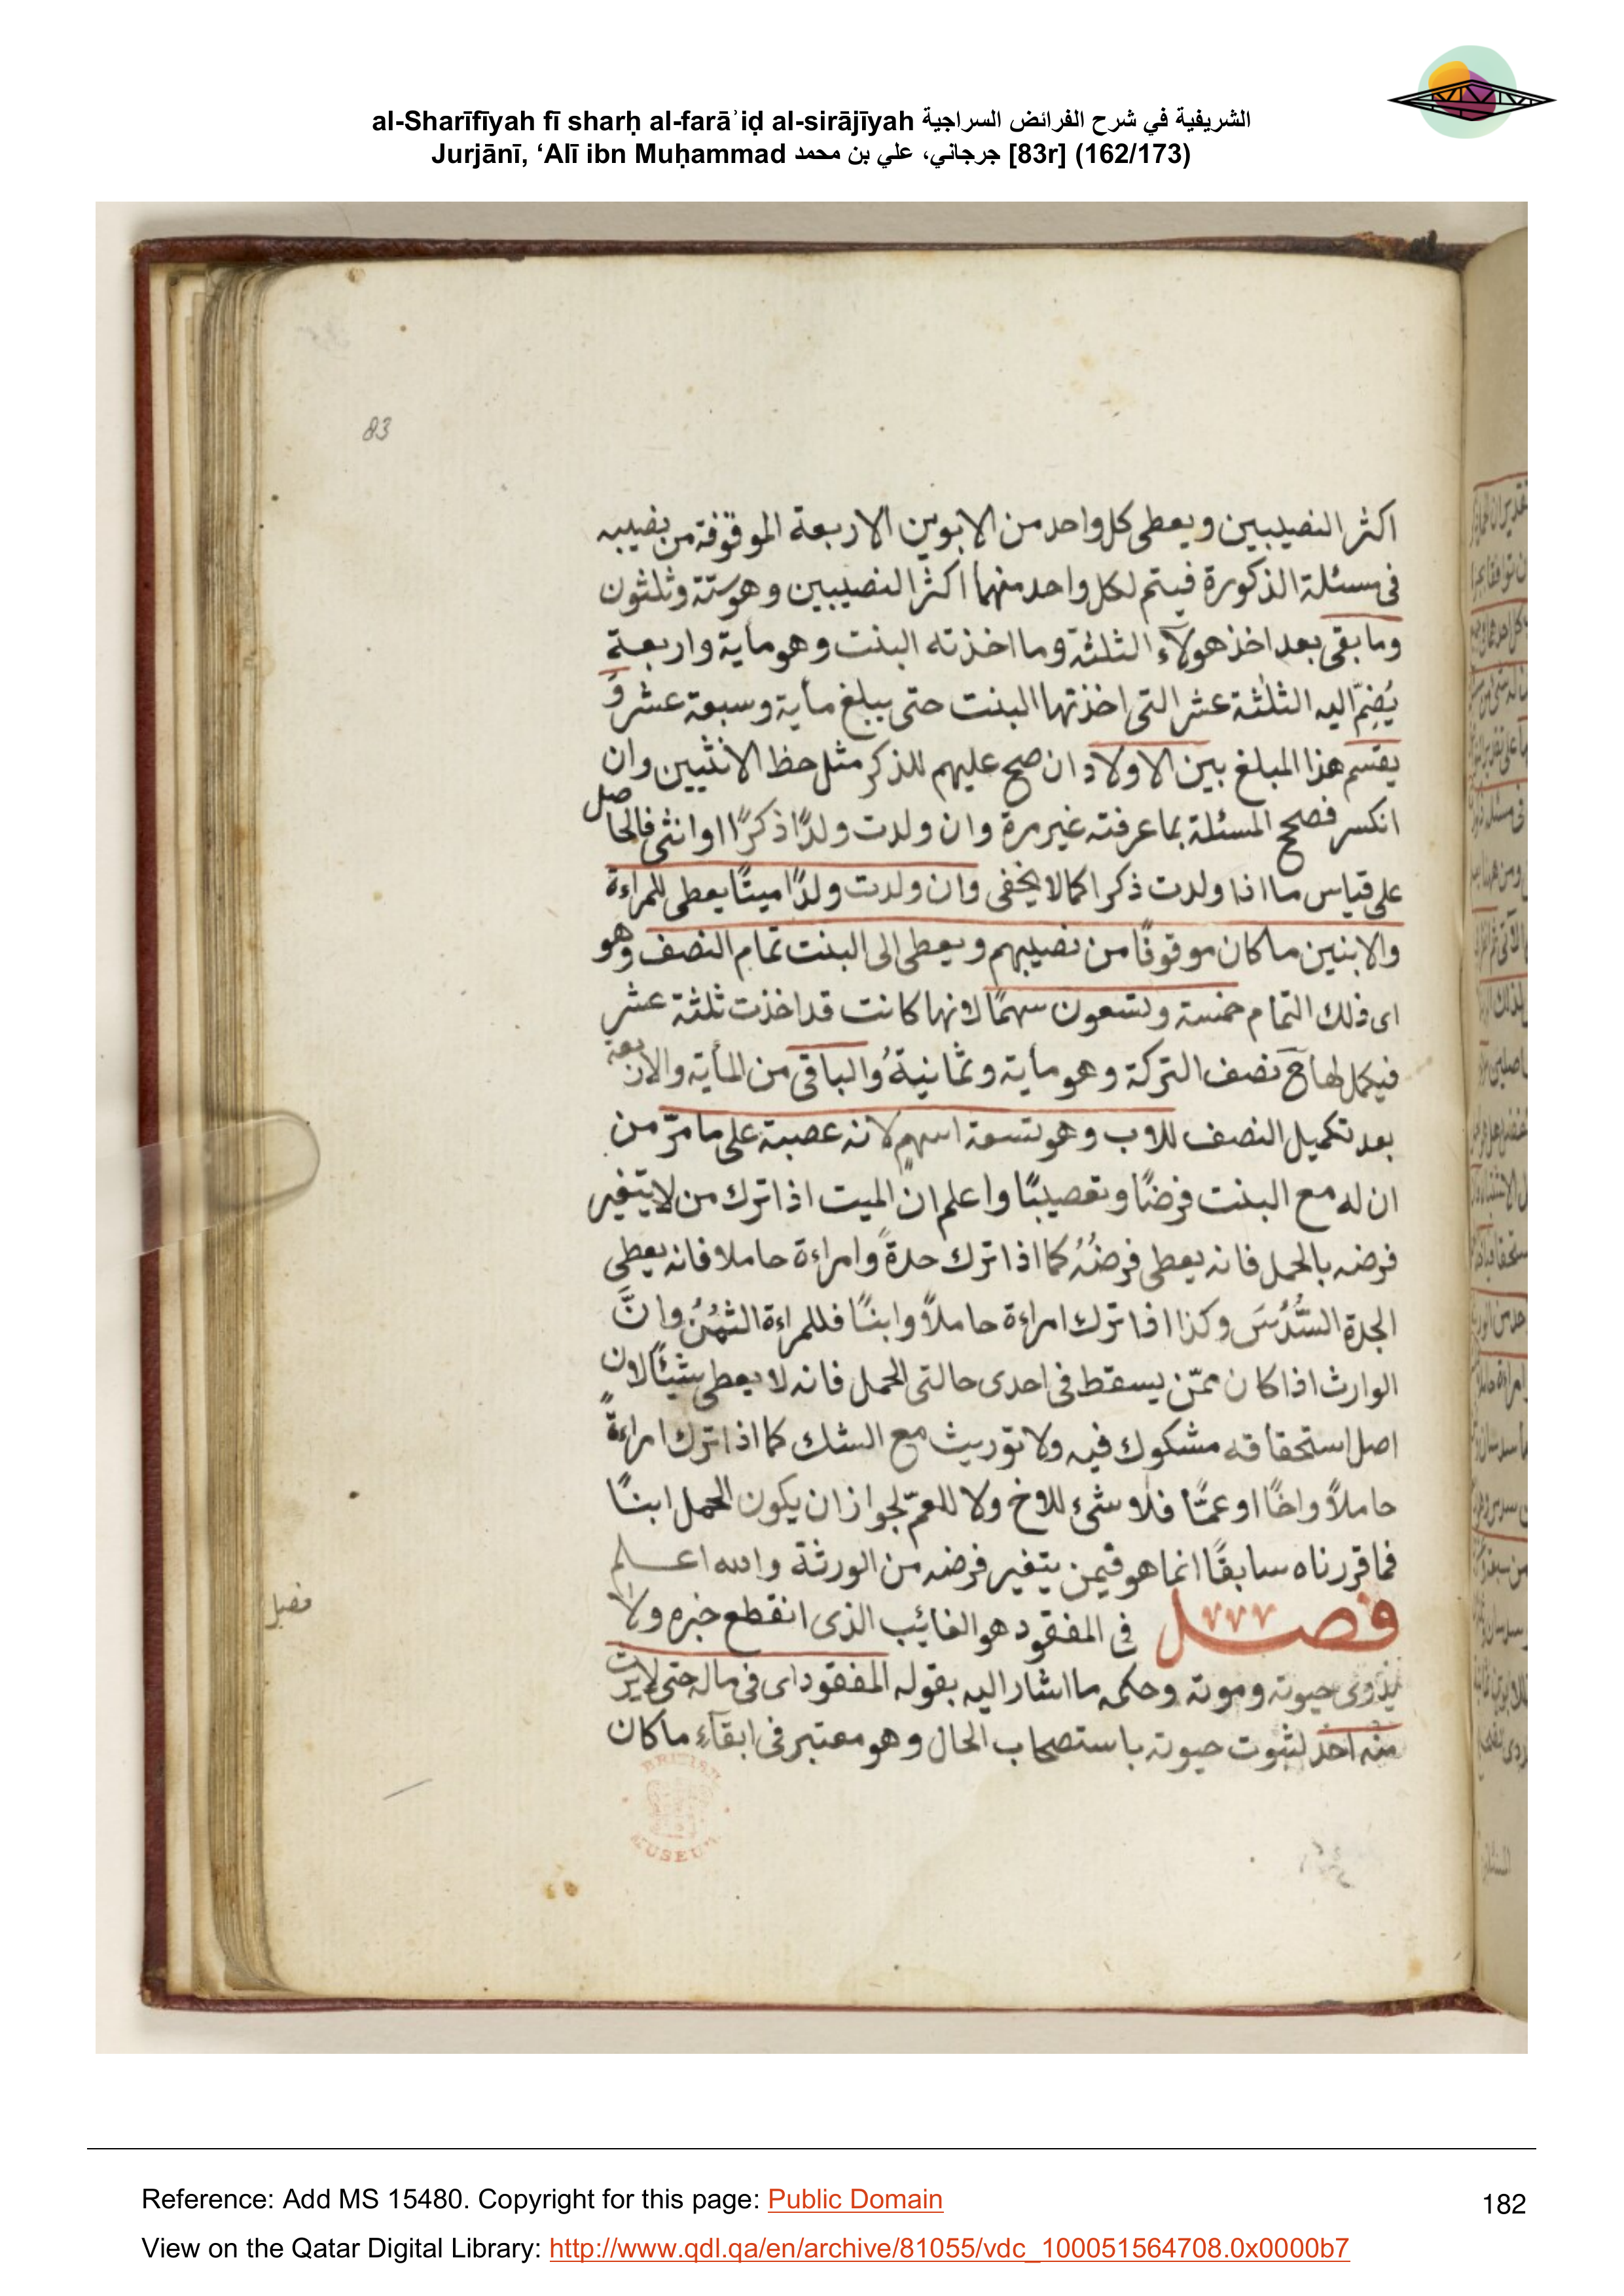 al-Sharīfīyah fī sharḥ al-farāʾiḍ al-sirājīyah الشريفية في شرح الفرائض السراجية
Jurjānī, ‘Alī ibn Muḥammad جرجاني، علي بن محمد [83r] (162/173)
83
اكثر النصيبين ويعطى كل واحد من الابوين الاربعة الموقوفة من نصيبه
فى مسئلة الذكورة فيتم لكل واحد منهما اكثر النصيبين وهو ستة وثلثون
وما بقى بعد اخذ هولآء الثلثة وما اخذته البنت وهو ماية واربعة
يُضمّ اليه الثلثة عشر التى اخذتها البنت حتى يبلغ مأية وسبعة عشر وَ
يقسم هذا المبلغ بين الاولاد ان صح عليهم للذكر مثل حظ الانثيين وان
انكسر فصحح المسئلة بما عرفته غير مرة وان ولدت ولدًا ذكرًا او انثى فالحاصل
على قياس ما اذا ولدت ذكرا كما لا يخفى وان ولدت ولدًا ميتًا يعطى للمراءة
والابنين ما كان موقوفًا من نصيبهم ويعطى الى البنت تمام النصف وهو
اى ذلك التمام خمسة وتسعون سهمًا لانها كانت قد اخذت ثلثة عشر
فيكمل لها ح نصف التركة وهو ماية وثمانيةُ والباقى من المأية والاربعة
بعد تكميل النصف للاب وهو تسعة اسهم لانه عصبة على ما مرّ من
ان له مع البنت فرضًا وتعصيبًا واعلم ان الميت اذا ترك من لا يتغير
فرضه بالحمل فانه يعطى فرضُهُ كما اذا ترك جدةً وامراءة حاملا فانه يعطى
الجدة السُّدُسَ وكذا اذا ترك امراءة حاملاً وابنًا فللمراءة الثمُنُ وانَّ
الوارث اذا كان ممّن يسقط فى احدى حالتى الحمل فانه لا يعطى شيئًا لان
اصل استحقاقه مشكوك فيه ولا توريث مع الشك كما اذا ترك امراءةً
حاملاً واخًا او عمًّا فلا شئ للاخ ولا للعمّ لجواز ان يكون الحمل ابنًا
فما قررناه سابقًا انما هو فيمن يتغير فرضه من الورثة والله اعلم
فصل فى المفقود هو الغائب الذى انقطع خبره ولا
يدرى حيوته وموته وحكمه ما اشار اليه بقوله المفقود اى فى ماله حتى لا يرث
منه احد لثبوت حيوته باستصحاب الحال وهو معتبر فى ابقآء ما كان
فصل
BRITISH
MUSEUM
Reference: Add MS 15480. Copyright for this page: Public Domain
182
View on the Qatar Digital Library: http://www.qdl.qa/en/archive/81055/vdc_100051564708.0x0000b7